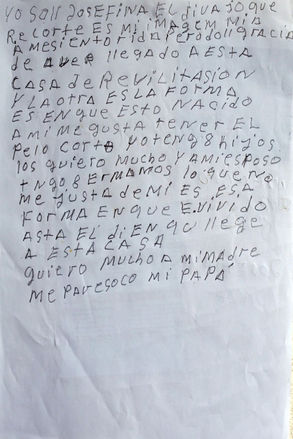 YO SOLL JOSEFINA EL diVAJO QUE
RECORTE ES MI IMAGEM MIA
A MESIENTORIDA PERO dOLL GRACIA
de AVER llEGAdO AESTA
CASA de REVILITASION
Y LA OTRA ES LA FORMA
ES ENQUE ESTO NACIdO
A MI ME GUSTA TENER EL
PELO CORTO YO TENG 8 hijOS
lOS QUIERO MUCHO Y A MI ESPOSO
TNGO 8 ERMAMOS lO QUE NO
ME GUSTA dE MI ES ESA
FORMA EN QUE E.VIVIdO
ASTA EL dIENQU llEGE
A ESTA CASA
QUIERO MUCHO A MI MAdRE
ME PARESOCO MI PAPÁ